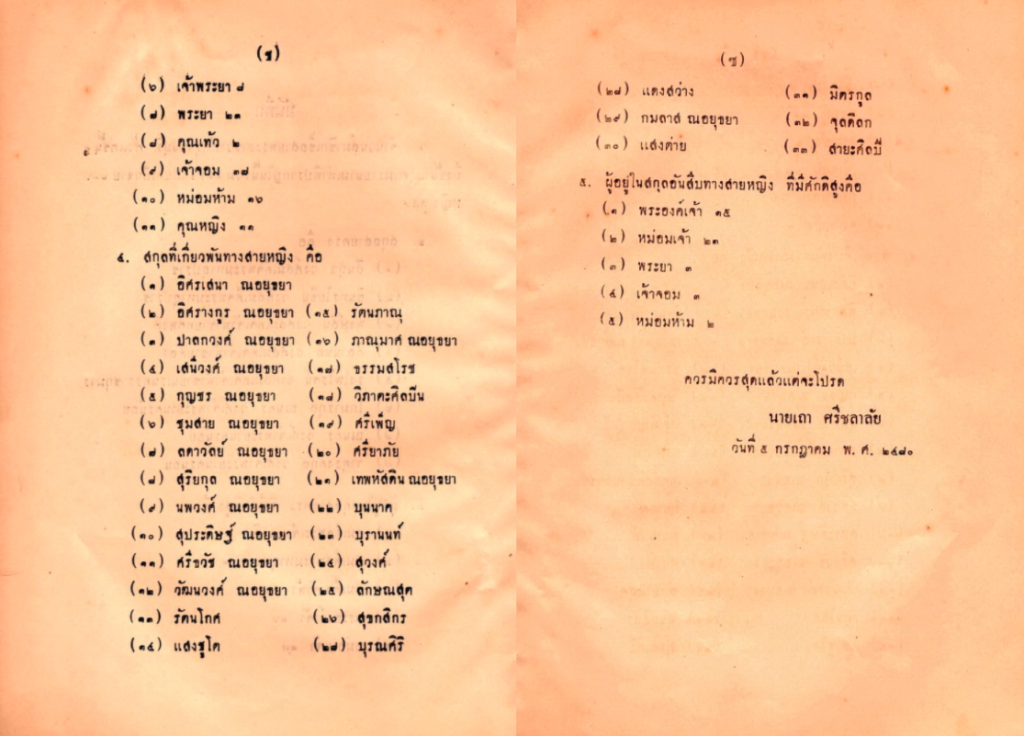 (ช)
(๖) เจ้าพระยา ๘
(๗) พระยา ๒๓
(๘) คุณเท้า ๒
(๙) เจ้าจอม ๑๗
(๑๐) หม่อมห้าม ๑๖
(๑๑) คุณหญิง ๑๑
๔. สกุลที่เกี่ยวพันทางสายหญิง คือ
(๑) อิศรเสนา ณอยุธยา
(๒) อิศรางกูร ณอยุธยา (๑๕) รัตนภาณุ
(๓) ปาลกวงศ์ ณอยุธยา (๑๖) ภาณุมาศ ณอยุธยา
(๔) เสนีวงศ์ ณอยุธยา (๑๗) ธรรมสโรช
(๕) กุญชร ณอยุธยา (๑๘) วิภาตะศิลปีน
(๖) ชุมสาย ณอยุธยา (๑๙) ศรีเพ็ญ
(๗) ลดาวัลย์ ณอยุธยา (๒๐) ศรียาภัย
(๘) สุริยกุล ณอยุธยา (๒๑) เทพหัสดิน ณอยุธยา
(๙) นพวงศ์ ณอยุธยา (๒๒) บุนนาค
(๑๐) สุประดิษฐ์ ณอยุธยา (๒๓) บุรานนท์
(๑๑) ศรีธวัช ณอยุธยา (๒๔) สุวงศ์
(๑๒) วัฒนวงศ์ ณอยุธยา (๒๕) ลักษณสุต
(๑๓) รัตนโกศ (๒๖) สุขกสิกร
(๑๔) แสงชูโต (๒๗) บุรณศิริ
(ซ)
(๒๘) แดงสว่าง (๓๑) มิตรกูล
(๒๙) กมลาส ณอยุธยา (๓๒) จุลดิลก
(๓๐) แสงต่าย (๓๓) สายะศิลปี
๕. ผู้อยู่ในสกุลอันสืบทางสายหญิง ที่มีศักดิสูงคือ
(๑) พระองค์เจ้า ๑๕
(๒) หม่อมเจ้า ๒๓
(๓) พระยา ๓
(๔) เจ้าจอม ๓
(๕) หม่อมห้าม ๒
ควรมิควรสุดแล้วแต่จะโปรด
นายเถา ศรีชลาลัย
วันที่ ๕ กรกฎาคม พ. ศ. ๒๔๘๐